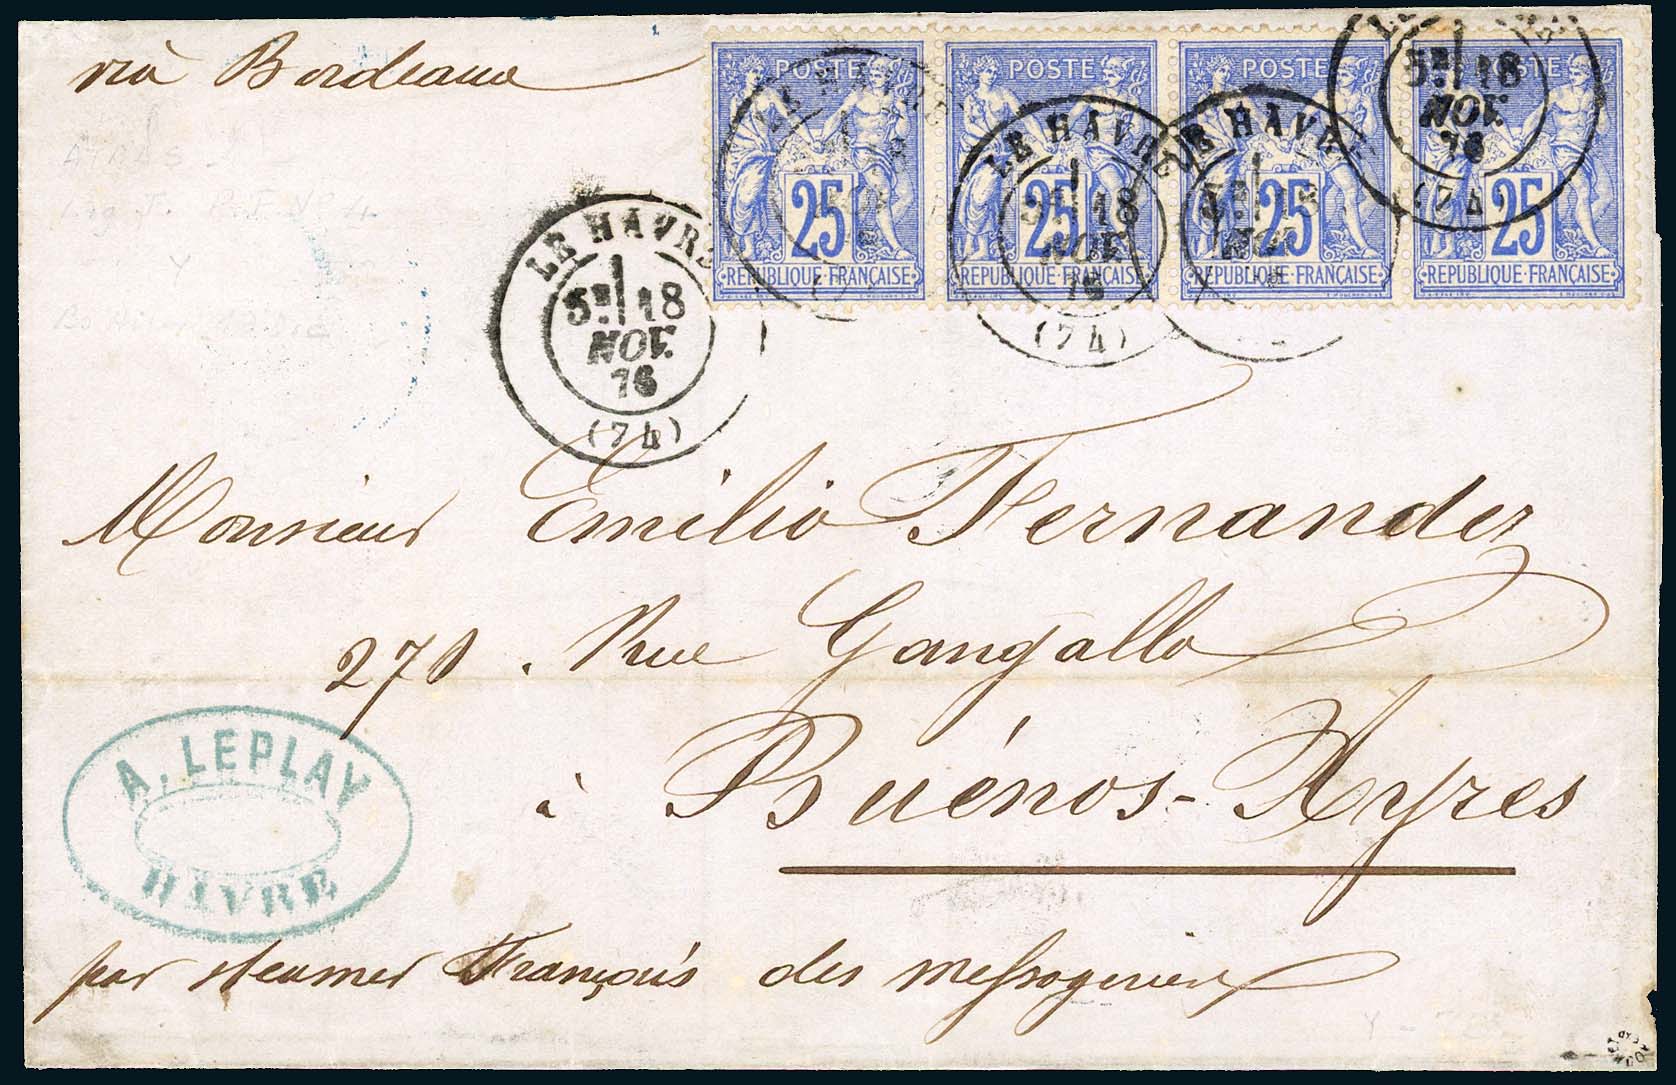 viâ Bordeaux
POSTE POSTE POSTE POSTE
25 25 25 25
REPUBLIQUE FRANÇAISE REPUBLIQUE FRANÇAISE REPUBLIQUE FRANÇAISE REPUBLIQUE FRANÇAISE
LE HAVRE
LE HAVRE
18
NOV.
76
(74)
LE HAVRE
18
5E 18
NOV.
76
(74)
LE HAVRE
5E 18
NOV.
76
(74)
Monsieur Emilio Fernandez
271. Rue Gangallo
à Buénos-Ayres
A. LEPLAY
HAVRE
par steamer Français des messageries